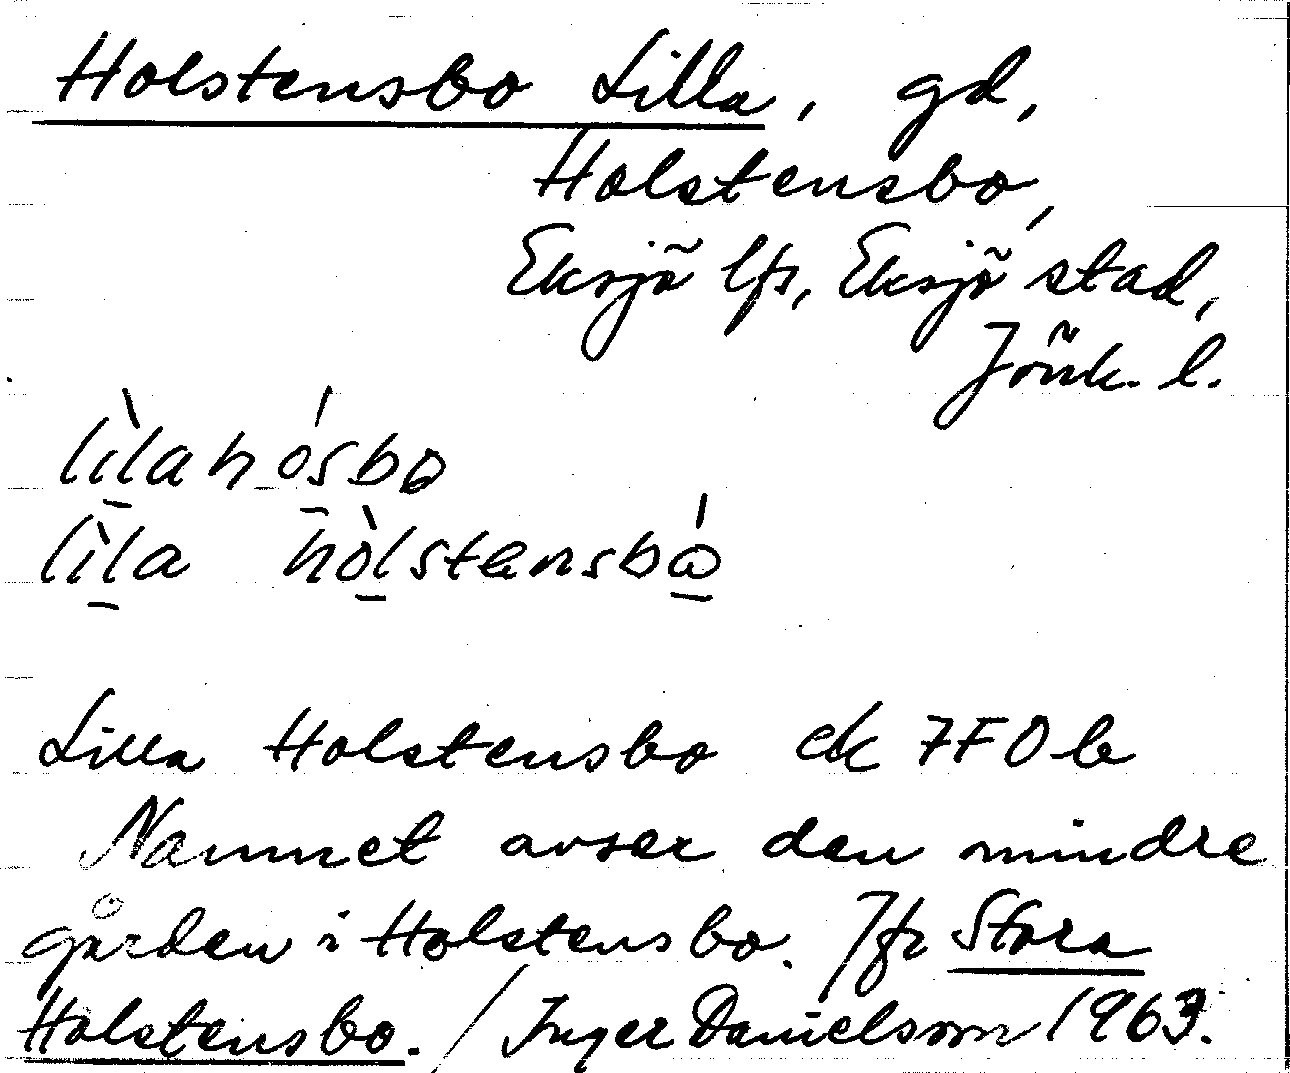 Holstensbo Lilla, gd,
Holstensbo,
Eksjö lfs, Eksjö stad,
Jönk. l.
lìlahósbo
lìla hòlstensbó
Lilla Holstensbo ek 7F0b
Namnet avser den mindre
gården i Holstensbo. Jfr Stora
Holstensbo. / Inger Danielsson 1963.